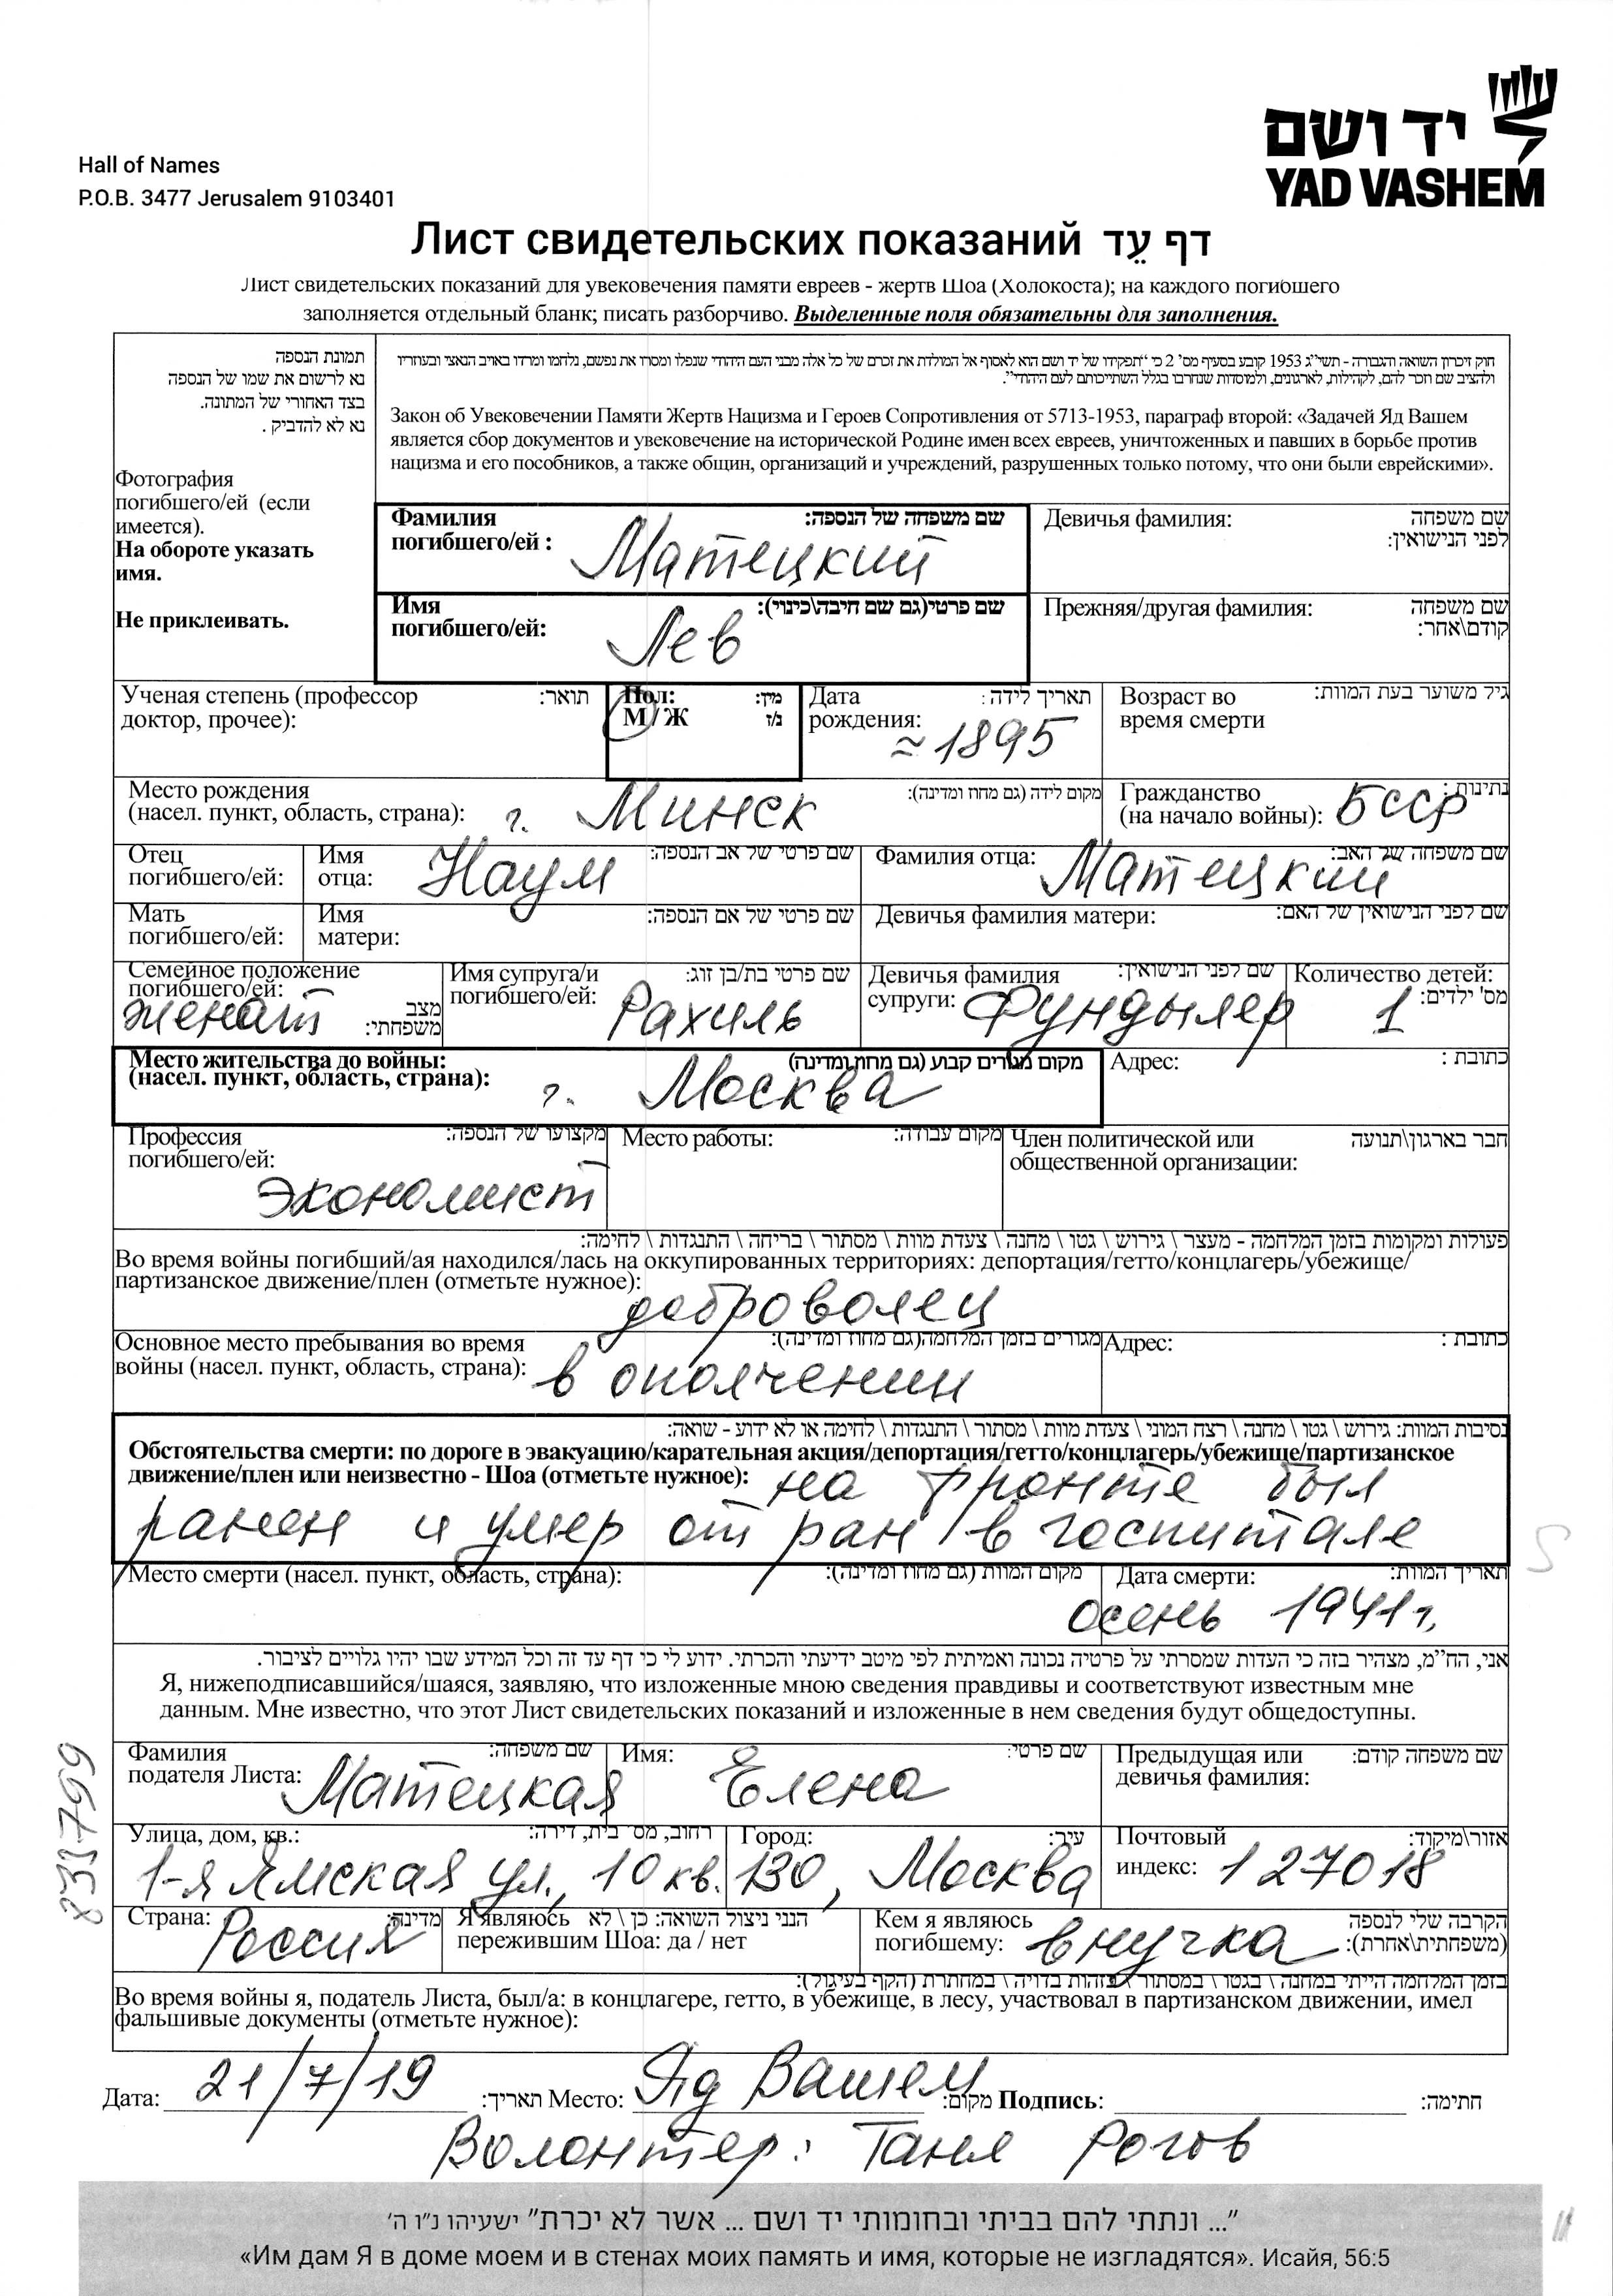 יד ושם
YAD VASHEM
Hall of Names
P.O.B. 3477 Jerusalem 9103401
Лист свидетельских показаний דף עֵד
Лист свидетельских показаний для увековечения памяти евреев - жертв Шоа (Холокоста); на каждого погибшего
заполняется отдельный бланк; писать разборчиво. Выделенные поля обязательны для заполнения.
תמונת הנספה
נא לרשום את שמו של הנספה
בצד האחורי של המתונה.
נא לא להדביק .
Фотография
погибшего/ей (если
имеется).
На обороте указать
имя.
Не приклеивать.
חוק זיכרון השואה והגבורה - תשי"ג 1953 קובע בסעיף מס' 2 כי "תפקידו של יד ושם הוא לאסוף אל המולדת את זכרם של כל אלה מבני העם היהודי שנפלו ומסרו את נפשם, נלחמו ומרדו באויב הנאצי ובעוזריו
ולהציב שם וזכר להם, לקהילות, לארגונים, ולמוסדות שנחרבו בגלל השתייכותם לעם היהודי".
Закон об Увековечении Памяти Жертв Нацизма и Героев Сопротивления от 5713-1953, параграф второй: «Задачей Яд Вашем
является сбор документов и увековечение на исторической Родине имен всех евреев, уничтоженных и павших в борьбе против
нацизма и его пособников, а также общин, организаций и учреждений, разрушенных только потому, что они были еврейскими».
Фамилия שם משפחה של הנספה:
погибшего/ей : Матецкий
Девичья фамилия: שם משפחה
לפני הנישואין:
Имя שם פרטי(גם שם חיבה\כינוי):
погибшего/ей: Лев
Прежняя/другая фамилия: שם משפחה
קודם\אחר:
Ученая степень (профессор תואר:
доктор, прочее):
Пол: מין:
М / Ж ז/נ
Дата תאריך לידה :
рождения: ≈ 1895
Возраст во גיל משוער בעת המוות:
время смерти
Место рождения מקום לידה (גם מחוז ומדינה):
(насел. пункт, область, страна): г. Минск
Гражданство נתינות :
(на начало войны): БССР
Отец
погибшего/ей:
Имя שם פרטי של אב הנספה:
отца: Наум
Фамилия отца: שם משפחה של האב:
Матецкий
Мать
погибшего/ей:
Имя שם פרטי של אם הנספה:
матери:
Девичья фамилия матери: שם לפני הנישואין של האם:
Семейное положение
погибшего/ей: מצב
женат משפחתי:
Имя супруга/и שם פרטי בת/בן זוג:
погибшего/ей: Рахиль
Девичья фамилия שם לפני הנישואין:
супруги: Фундылер
Количество детей:
1 מס' ילדים:
Место жительства до войны: מקום מגורים קבוע (גם מחוז ומדינה)
(насел. пункт, область, страна): г. Москва
Адрес: כתובת :
Профессия מקצועו של הנספה:
погибшего/ей:
Экономист
Место работы: מקום עבודה:
Член политической или חבר בארגון\תנועה
общественной организации:
פעולות ומקומות בזמן המלחמה - מעצר \ גירוש \ גטו \ מחנה \ צעדת מוות \ מסתור \ בריחה \ התנגדות \ לחימה:
Во время войны погибший/ая находился/лась на оккупированных территориях: депортация/гетто/концлагерь/убежище/
партизанское движение/плен (отметьте нужное):
доброволец
Основное место пребывания во время מגורים בזמן המלחמה(גם מחוז ומדינה):
войны (насел. пункт, область, страна): в ополчении
Адрес: כתובת :
נסיבות המוות: גירוש \ גטו \ מחנה \ רצח המוני \ צעדת מוות \ מסתור \ התנגדות \ לחימה או לא ידוע - שואה:
Обстоятельства смерти: по дороге в эвакуацию/карательная акция/депортация/гетто/концлагерь/убежище/партизанское
движение/плен или неизвестно - Шоа (отметьте нужное): на фронте был
ранен и умер от ран в госпитале
Место смерти (насел. пункт, область, страна): מקום המוות (גם מחוז ומדינה):
Дата смерти: תאריך המוות:
осень 1941г.
אני, הח"מ, מצהיר בזה כי העדות שמסרתי על פרטיה נכונה ואמיתית לפי מיטב ידיעתי והכרתי. ידוע לי כי דף עד זה וכל המידע שבו יהיו גלויים לציבור.
Я, нижеподписавшийся/шаяся, заявляю, что изложенные мною сведения правдивы и соответствуют известным мне
данным. Мне известно, что этот Лист свидетельских показаний и изложенные в нем сведения будут общедоступны.
831799
Фамилия שם משפחה:
подателя Листа: Матецкая
Имя: שם פרטי:
Елена
Предыдущая или שם משפחה קודם:
девичья фамилия:
Улица, дом, кв.: רחוב, מס' בית, דירה:
1-я Ямская ул., 10 кв. 130, Москва
Город: עיר:
Почтовый אזור\מיקוד:
индекс: 127018
Страна: Россия מדינה:
Я являюсь הנני ניצול השואה: כן \ לא
пережившим Шоа: да / нет
Кем я являюсь הקרבה שלי לנספה
погибшему: внучка (משפחתית\אחרת):
בזמן המלחמה הייתי במחנה \ בגטו \ במסתור \ בזהות בדויה \ במחתרת (הקף בעיגול):
Во время войны я, податель Листа, был/а: в концлагере, гетто, в убежище, в лесу, участвовал в партизанском движении, имел
фальшивые документы (отметьте нужное):
Дата: 21/7/19 תאריך: Место: Яд Вашем מקום: Подпись: חתימה:
Волонтер: Таня Рогов
"... ונתתי להם בביתי ובחומותי יד ושם ... אשר לא יכרת" ישעיהו נ"ו ה'
«Им дам Я в доме моем и в стенах моих память и имя, которые не изгладятся». Исайя, 56:5